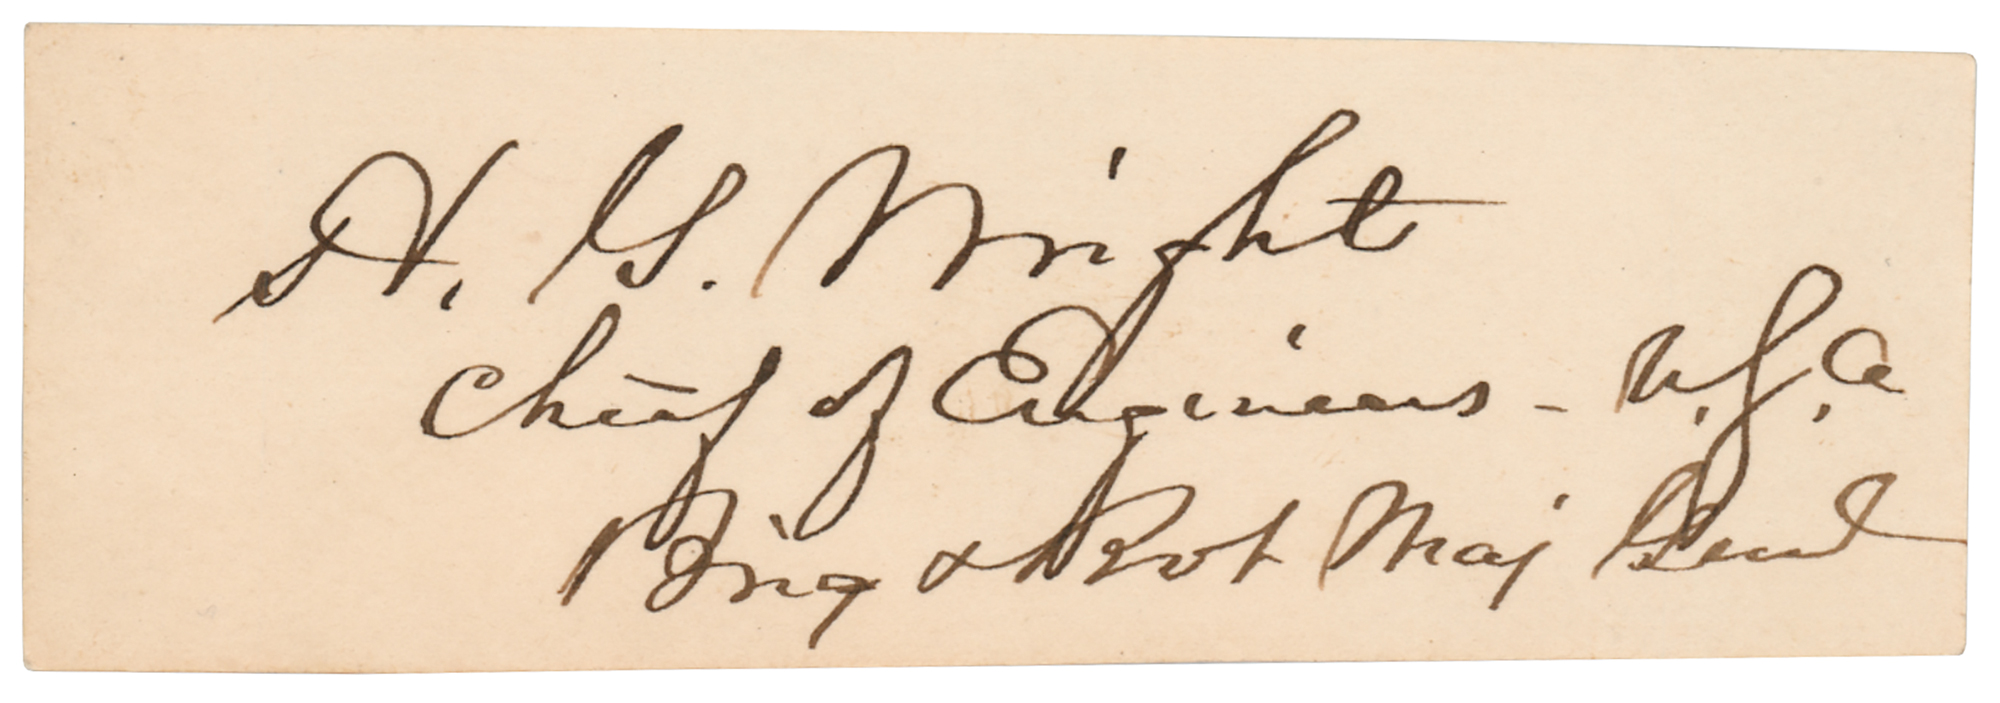 H. G. Wright
Chief of Engineers - U.S.A
Brig & Bvt Maj Genl